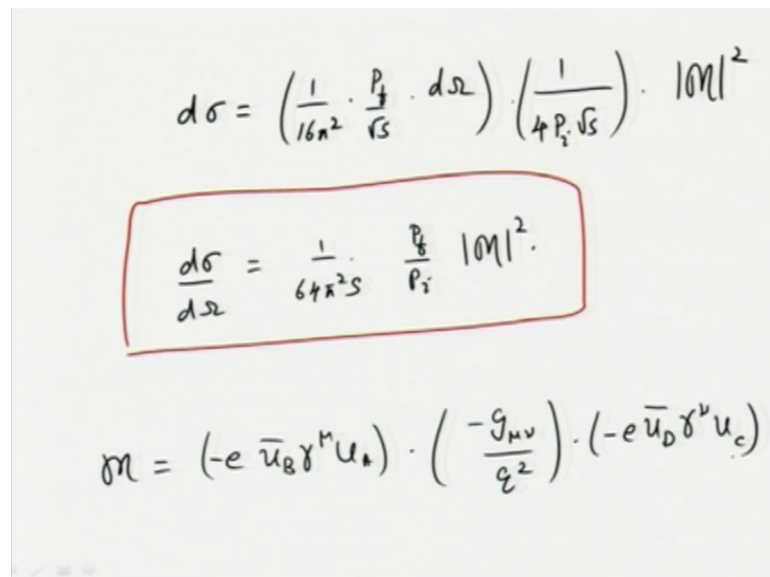 dσ = (1/16π² · P_f/√s · dΩ) · (1/4P_i√s) · |M|²
dσ/dΩ = 1/64π²s P_f/P_i |M|².
M = (-e ū_B γ^μ u_A) · (-g_μν/q²) · (-e ū_D γ^ν u_C)